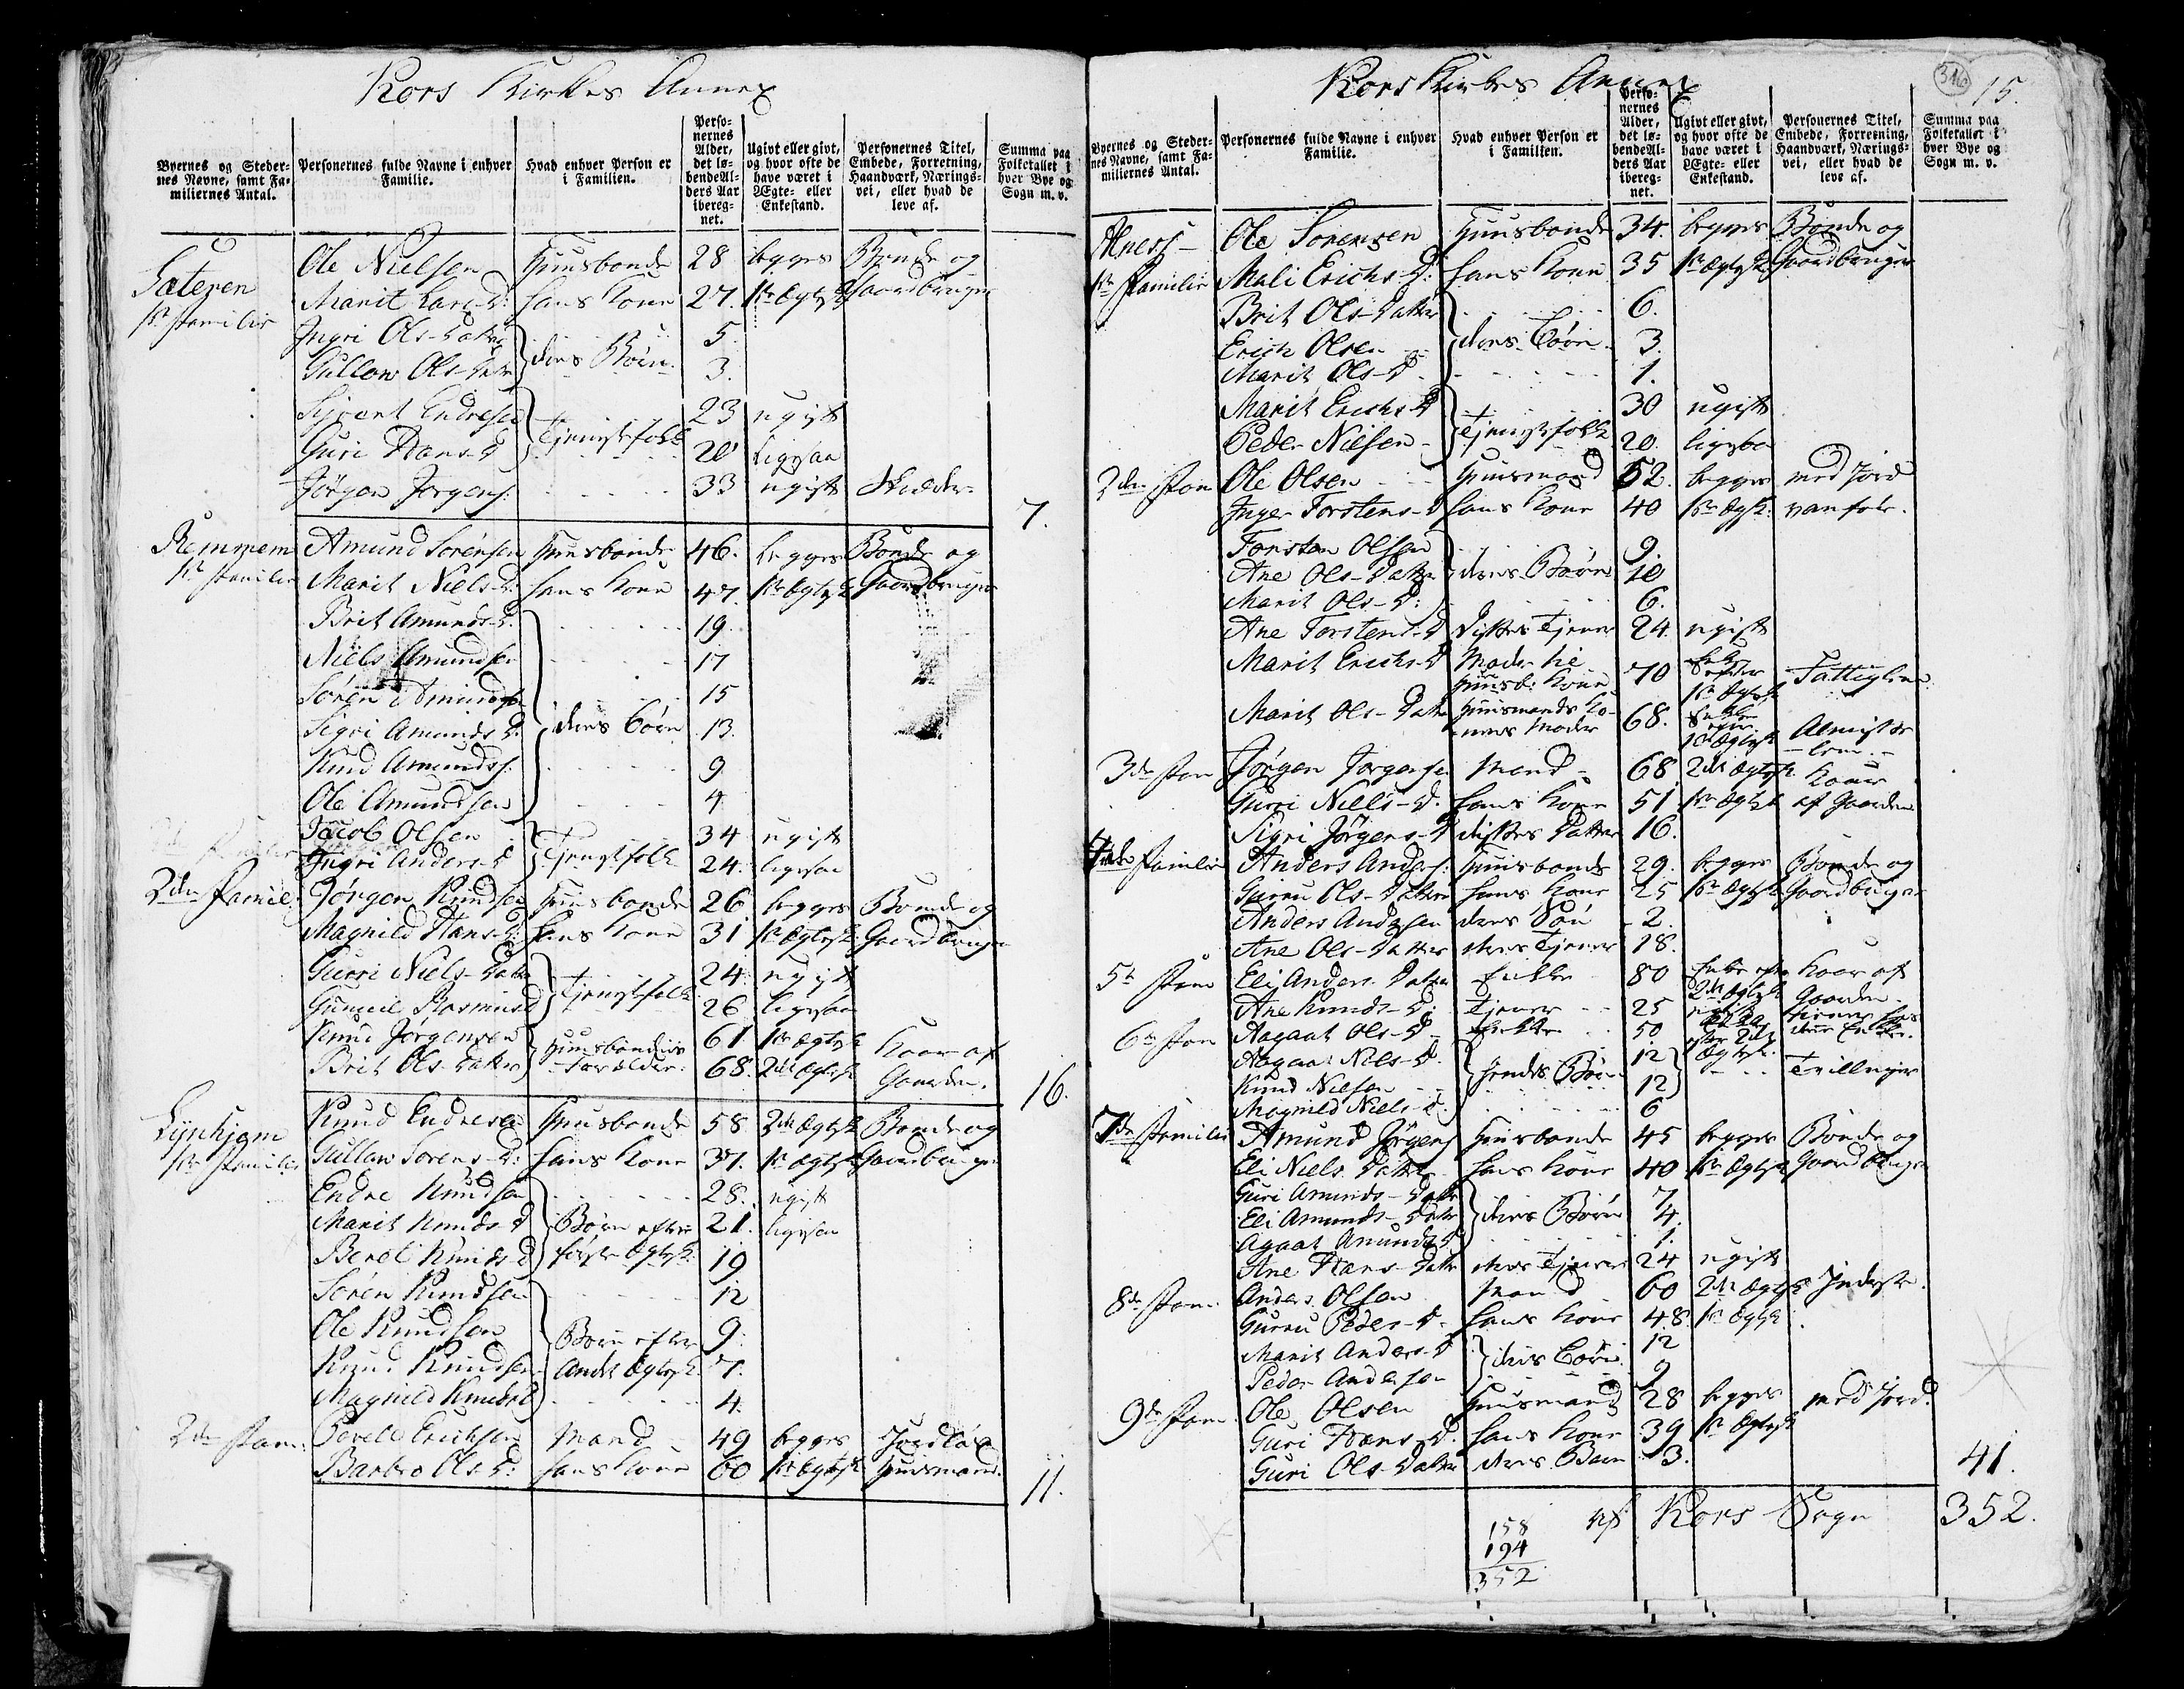 Kors Kirkes Annex
Byernes og Steder-nes Navne, samt Fa-miliernes Antal.
Personernes fulde Navne i enhver Familie.
Hvad enhver Person er i Familien.
Perso-nernes Alder, det lø-bende Al-ders Aar ibereg-net.
Ugivt eller givt, og hvor ofte de have været i Ægte- eller Enkestand.
Personernes Titel, Embede, Forretning, Haandværk, Nærings-vei, eller hvad de leve af.
Summa paa Folketallet i hver Bye og Sogn m. v.
Sæteren Ole Nielsen Huusbonde 28 begges Bonde og
1te Familie Marit Lars-D: hans Kone 27. 1te Ægtsk Gaardbruger
Ingri Ols-Datter 5.
Gullow Ols-Datter deres Børn 3.
Sivert Endresen 23 ugift
Guri Hans-D Tjenistfolk 20 ligesaa
Jørgen Jørgens: 33 ugift Skræder.
7.
Remmem Amund Sørensen Huusbonde 46. begges Bonde og
1te Familie Marit Niels-D: hans Kone 47. 1te Ægtsk Gaardbruger
Brit Amunds-D. 19
Niels Amundsen 17
Søren Amundsen 15
Sigri Amunds D. deres Børn 13.
Knud Amunds: 9
Ole Amundsen 4
Jacob Olsen 34 ugift
Ingri Anders-D Tjenistfolk 24. ligesaa
2den Famil: Jørgen Knudsen Huusbonde 26 begges Bonde og
Magnild Hans-D: hans Kone 31 1te Ægtsk. Gaardbruger
Gurri Niels-Datter 24. ugift
Gunnil Rasmusd Tjenistfolk 26 ligesaa
Knud Jørgensen Huusbondens 61. 1te Ægtsk Kaar af
Brit Ols-Datter Forælder. 68. 2det Ægtsk Gaarden.
16.
Lynhjem Knud Endresen Huusbonde 58 2det Ægtsk Bonde og
1te Familie Gullow Sørens-D: hans Kone 37. 1te Ægtsk Gaardbruger
Endre Knudsen 28. ugift
Marit Knuds-D Børn efter 21. ligesaa
Berit Knuds-D første Ægtsk. 19
Søren Knudsen 12
Ole Knudsen Børn efter 9.
Knud Knudsen Andet Ægtsk. 7.
Magnild Knudsd 4.
2den Fam: Povel Erichsen Mand 49 begges Jordløs
Barbro Ols-D: hans Kone 60 1te Ægtsk Huusmand.
11.
Kors Kirkes Annex
316
15.
Byernes og Steder-nes Navne, samt Fa-miliernes Antal.
Personernes fulde Navne i enhver Familie.
Hvad enhver Person er i Familien.
Perso-nernes Alder, det lø-bende Al-ders Aar ibereg-net.
Ugivt eller givt, og hvor ofte de have været i Ægte- eller Enkestand.
Personernes Titel, Embede, Forretning, Haandværk, Nærings-vei, eller hvad de leve af.
Summa paa Folketallet i hver Bye og Sogn m. v.
Ole Sørensen Huusbonde 34. begges Bonde og
1te Familie Mali Erichs-D: hans Kone 35 1te Ægtsk Gaardbruger
Brit Ols-Datter 6.
Erich Olsen deres Børn 3
Marit Ols-D 1.
Marit Erichs-D 30 ugift
Peder Nielsen Tjenistfolk 20. ligesaa
2den Fam Ole Olsen Huusmand 52. begges med Jord
Inger Torstens-D hans Kone 40 1te Ægtsk. vanfør.
Torsten Olsen 9.
Ane Ols-Datter deres Børn 10
Marit Ols-D: 6.
Ane Torstens-D Disses Tjener 24. ugift
Marit Erichs-D Moder til Huusb: Kone 70 Enke efter 1te Ægtsk Fattiglem
Marit Ols-Datter Huusmands Ko-nens Moder 68. Enke efter 1te Ægtsk Almisse lem.
3de Fam Jørgen Jørgensen Mand 68 2det Ægtsk. Kaar
Gurri Niels-D. hans Kone 51. 1te Ægtsk af Gaarden
Sigri Jørgens-D disses Datter 16.
4de Familie Anders Anders: Huusbonde 29. begges Bonde og
Gurru Ols-Datter hans Kone 25 1te Ægtsk Gaardbruger
Anders Andersen deres Søn 2.
Ane Ols-Datter deres Tjener 18.
5te Fam Eli Anders Datter Enke 80 Enke efter 2det Ægtsk Kaar af Gaarden
Ane Knuds-D: Tjener 25 ugift tjener hos
6te Fam Aagaat Ols-D. Enke 50 efter 2det Ægtsk. denne Enke.
Aagaat Niels-D. 12
Knud Nielsen hendes Børn 12 Tvillinger
Magnild Niels-D. 6
7de Familie Amund Jørgens Huusbonde 45 begges Bonde og
Eli Niels Datter hans Kone 40 1te Ægtsk Gaardbruger
Guri Amunds-Datter 7
Eli Amunds-Datter deres Børn 4.
Agaat Amunds D 1.
Ane Hans-Datter deres Tjener 24 ugift
8de Fam. Anders Olsen Mand 60 2det Ægtsk Inderste.
Gurru Peders-D. hans Kone 48. 1te Ægtsk
Marit Anders-D 12
Peder Andersen deres Børn 9
9de Fam. Ole Olsen Huusmand 28 begges med Jord.
Guri Hans-D. hans Kone 39 1te Ægtsk
Guri Ols-Datter deres Barn 3.
41.
Kors Sogn 352.
158
194
352